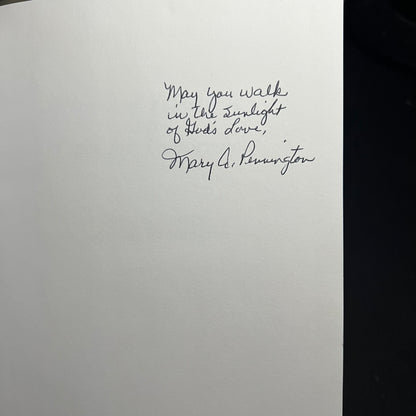 May you walk
in the Sunlight
of God's Love,
Mary A. Pennington